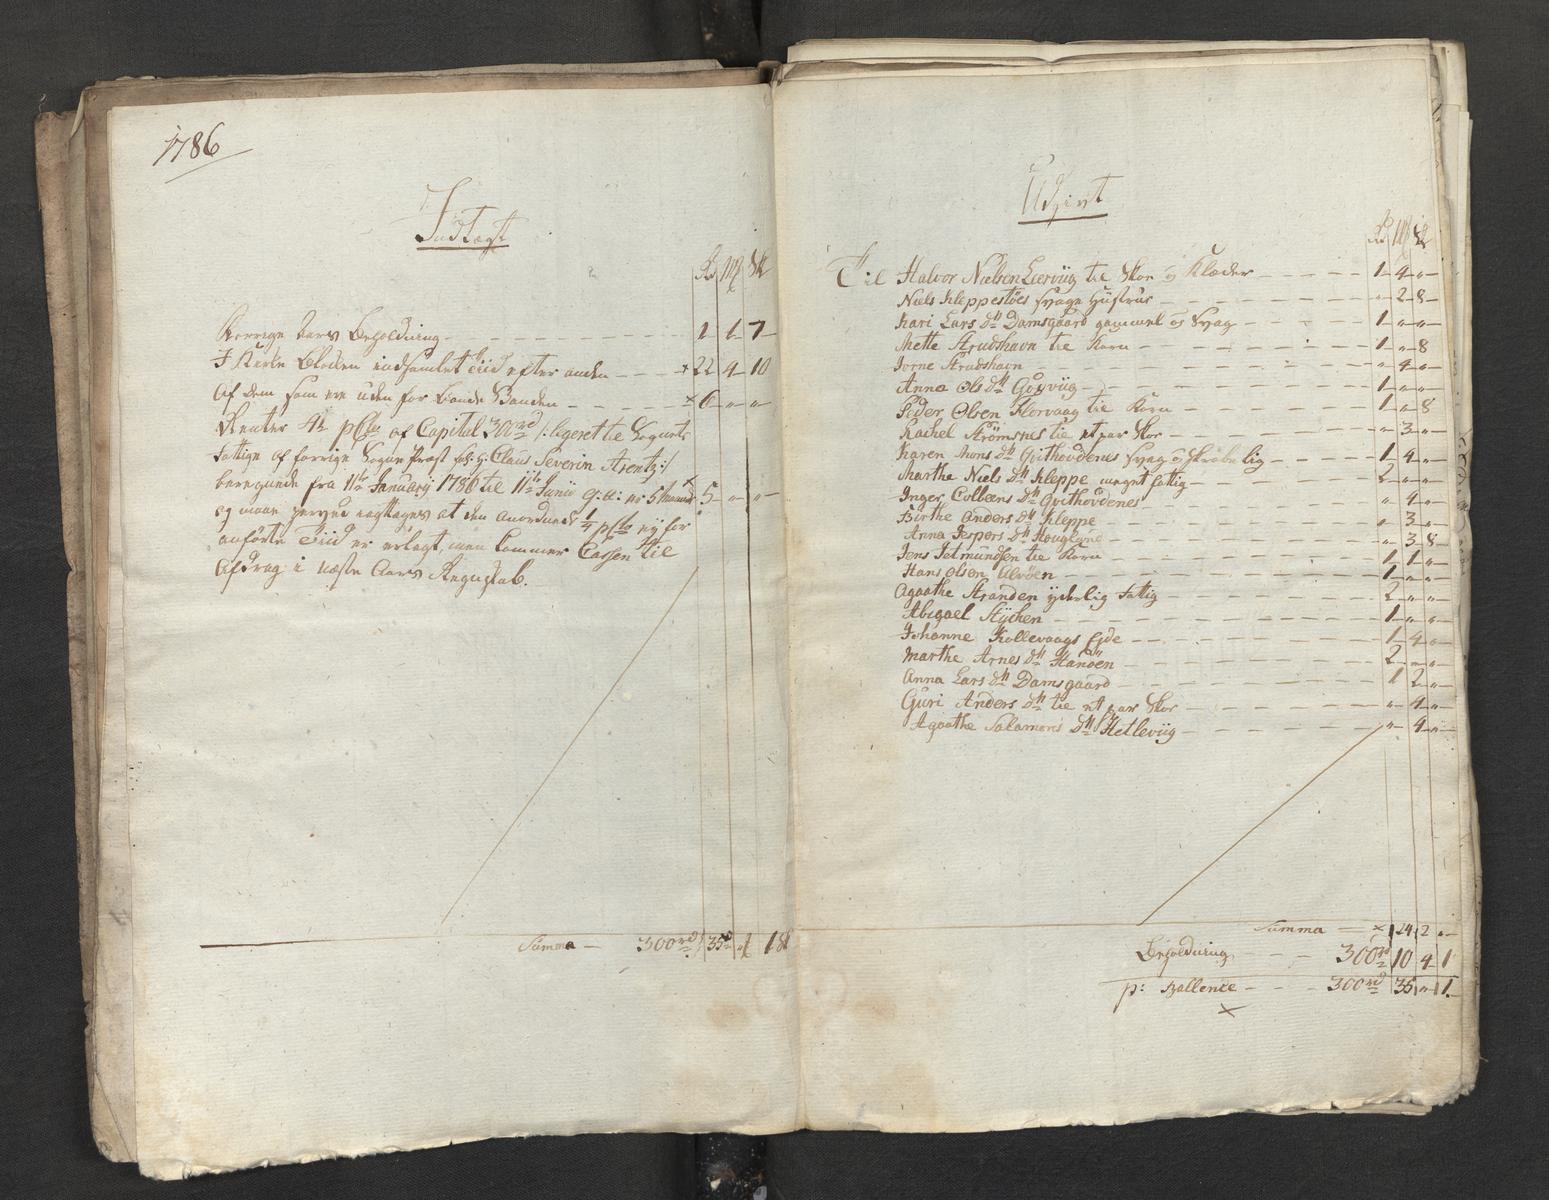 1786
Indtægt
Rd Mk Sk
Forrige Aars Beholdning 1 1 7
I Kirke Blokken indsamlet Tiid efter anden × 22 4 10
Af dem som ere uden for Bonde Standen × 6 " "
Renter 4 p Cto af Capital 300rd /: legeret til Sognets
Fattige af forrige Sogne Præst Hr Claus Severin Arentz :/
beregnede fra 11te January 1786 til 11te Junii er 5 Maaneder × 5 " "
og maae herved iagttages at den anordnede 1/4 p Cto ey for
anførte Tiid er erlagt, men kommer Cassen til
Afdrag i næste Aars Regnskab.
Summa — 300rd 35rd " 1
Udgivt
Rd Mk Sk
Til Halvor Nielsen Leerviig til Skoe og Klæder 1 4 "
Niels Kleppestøes syage Hustrue " 2 8
Kari Lars dtr Damsgaard gammel og syag 1 " "
Mette Strudshavn til Korn 1 " 8
Jorne Strudshavn " 4 "
Anna Ols dtr 1 " "
Peder Olsen Florvaag til Korn 1 " 8
Rachel Strømsnes til et par Skoe " 3 "
Karen Mons dtr Qvithovdenes syag og skrøbelig 1 4 "
Marthe Niels dtr Kleppe meget fattig 2 " "
Inger Colleens dtr Qvithovdenes " 4 "
Birthe Anders dtr Kleppe " 3 "
Anna Jespers dtr " 3 8
Jens Jetmundsen til Korn 1 1 "
Hans Olsen Alvøen 1 " "
Agaathe Stranden yderlig fattig 2 " "
Abigael Stychen 1 " "
Johanne Kollevaags Eyde 1 4 "
Marthe Arnes dtr Hanøen 2 " "
Anna Lars dtr Damsgaard 1 2 "
Guri Anders dtr til et par Skoe " 4 "
Agaathe Salamons dtr Hetleviig " 4 "
Summa — × 24 2 "
Beholdning 300rd 10 4 1
p: Ballence 300rd 35 " 1
×